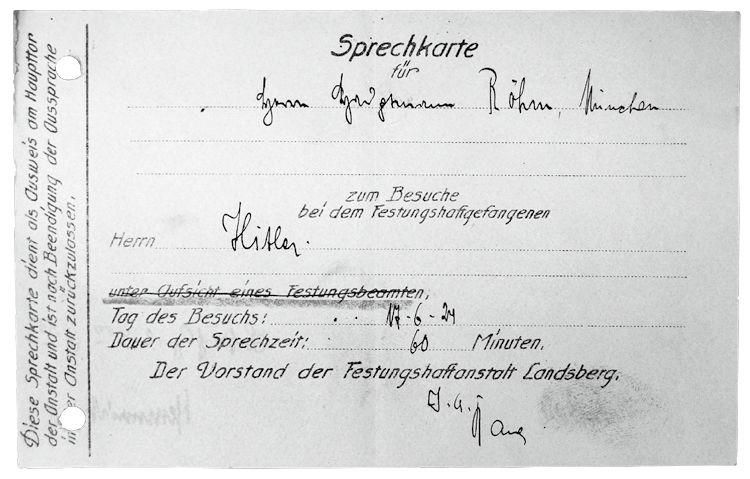 Sprechkarte
für
Herrn Hauptmann Röhm, München
zum Besuche
bei dem Festungshaftgefangenen
Herrn Hitler.
unter Aufsicht eines Festungsbeamten,
Tag des Besuchs: 17-6-24
Dauer der Sprechzeit: 60 Minuten.
Der Vorstand der Festungshaftanstalt Landsberg.
J. A.
Diese Sprechkarte dient als Ausweis am Haupttor
der Anstalt und ist nach Beendigung der Aussprache
in der Anstalt zurückzulassen.